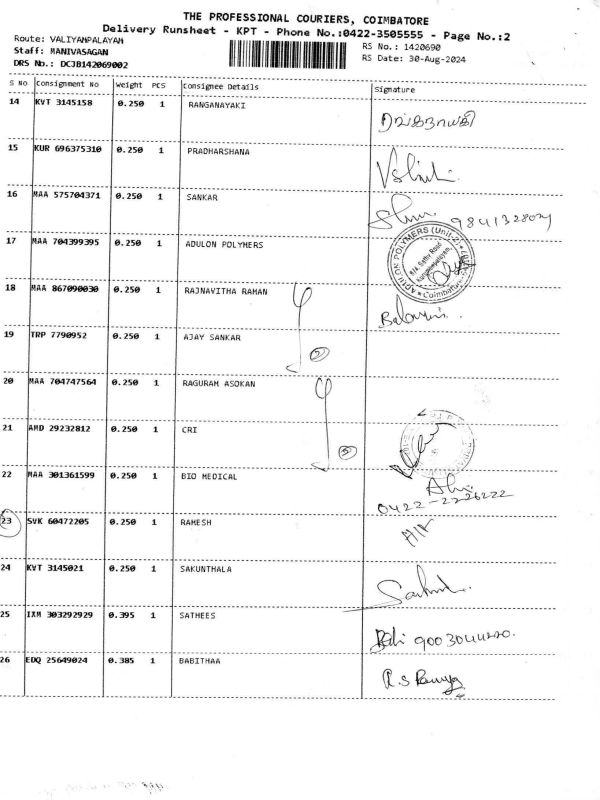 THE PROFESSIONAL COURIERS, COIMBATORE
Delivery Runsheet - KPT - Phone No.:0422-3505555 - Page No.:2
Route: VALIYAMPALAYAM
Staff: MANIVASAGAN
DRS No.: DCJB142069002
RS No.: 1420690
RS Date: 30-Aug-2024
S NO Consignment No Weight PCS Consignee Details Signature
14 KVT 3145158 0.250 1 RANGANAYAKI
ரங்கநாயகி
15 KUR 696375310 0.250 1 PRADHARSHANA
16 MAA 575704371 0.250 1 SANKAR
17 MAA 704399395 0.250 1 ADULON POLYMERS
ADULON POLYMERS (Unit-2)
Coimbatore
18 MAA 867090030 0.250 1 RAJNAVITHA RAMAN
19 TRP 7790952 0.250 1 AJAY SANKAR
20 MAA 704747564 0.250 1 RAGURAM ASOKAN
21 AMD 29232812 0.250 1 CRI
22 MAA 301361599 0.250 1 BIO MEDICAL
0422-2226222
23 SVK 60472205 0.250 1 RAMESH
24 KVT 3145021 0.250 1 SAKUNTHALA
25 IXM 303292929 0.395 1 SATHEES
26 EDQ 25649024 0.385 1 BABITHAA
R.S Ramya